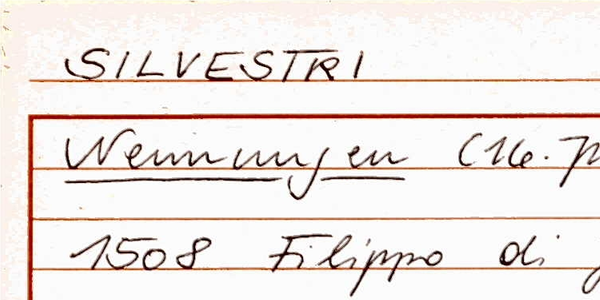 SILVESTRI
Nennungen (16.
1508 Filippo di